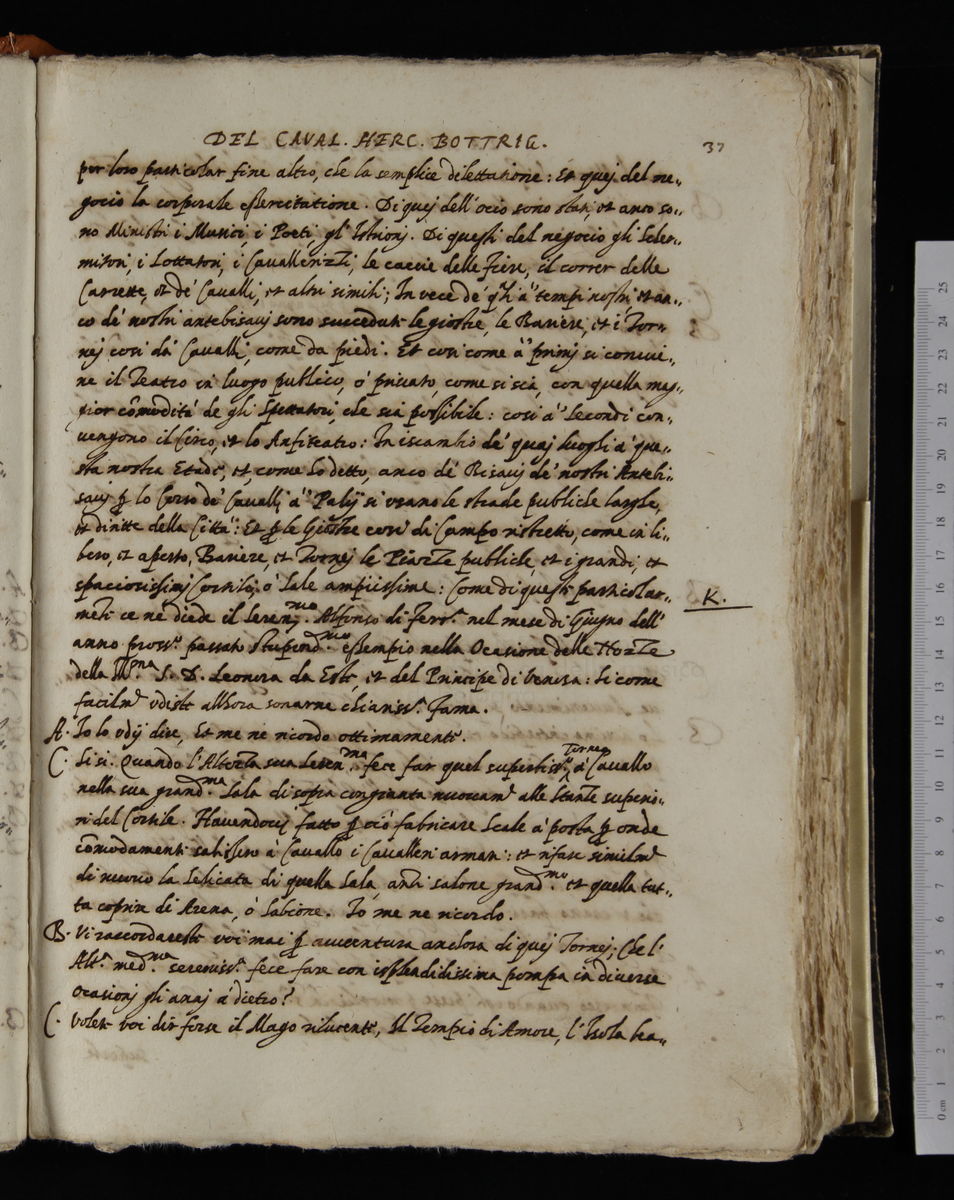 DEL CAVAL. HERC. BOTTRIG. 37
per loro particolar fine altro, che la semplice dilettatione: Et quej del ne„
gocio la corporale essercitatione. Di quej dell'ocio sono stati et anco so„
no Ministri i Musici, i Poeti, gl'Istrionj. Di questi del negocio gli Scher„
mitori, i Lottatori, i Cavallerizzi, le caccie delle Fiere, il correr delle
Carrette, et de' Cavalli, et altri simili; In vece de' qli à tempi nostri et an„
co de' nostri antebisavj sono succedute le giostre, le Bariere, et i Tor„
nej cosi da Cavalli, come da piedi. Et cosi come à primj si convie„
ne il Teatro in luogo publico, ò privato, come si sia, con quella mag„
gior cõmodità de gli Spettatori, che sia possibile: cosi à secondi con„
vengono il Circo, et lo Anfiteatro: In iscambio de' quaj luoghi à que„
sta nostra Etade, et, come ho detto, anco de' Bisavj de' nostri Antebi„
savj p lo Corso de' Cavalli à Palij si usano le strade publiche larghe,
et diritte della Città: Et p le Giostre cosi di Campo ristretto, come in li„
bero, et aperto, Bariere, et Tornej le Piazze publiche, et i grandi, et
spaciosissimj Cortili, ò Sale ampiissime: Come di questi particolar„
K.
mete ce ne diede il Seren.mo Alfonso di Ferr.a nel mese di Giugno dell'
anno pross.o passato stupend.mo essempio nella Ocasione delle Nozze
della Ill.ma S. D. Leonora da Este, et del Principe di Venosa: Si come
facilm.te udiste allhora sonarne chiariss.a fama.
A. Io lo udij dire, Et me ne ricordo ottimamente.
C. Si si. Quando l'Altezza sua Seren.ma fece far quel superbiss.o Torneo à Cavallo
nella sua grand.ma Sala di sopra congionta nuovam.te alle Stanze superio„
ri del Cortile. Havendovj fatto p ciò fabricare Scale à posta p onde
cõmodamente salissero à Cavallo i Cavallieri armati: et rifare similm.te
di nuovo la Selicata di quella Sala, anzi salone grand.mo et quella tut„
ta coprir di Arena, ò Sabione. Io me ne ricordo.
B. Vi raccordareste voi mai p avventura anchora di quej Tornej, che l'
Alt.a med.ma sereniss.a fece fare con isplendidissima pompa in diverse
ocasionj gli annj à dietro?
C. Volete voi dir forse il Mago rilucente, Il Tempio di Amore, l'Isola bea„